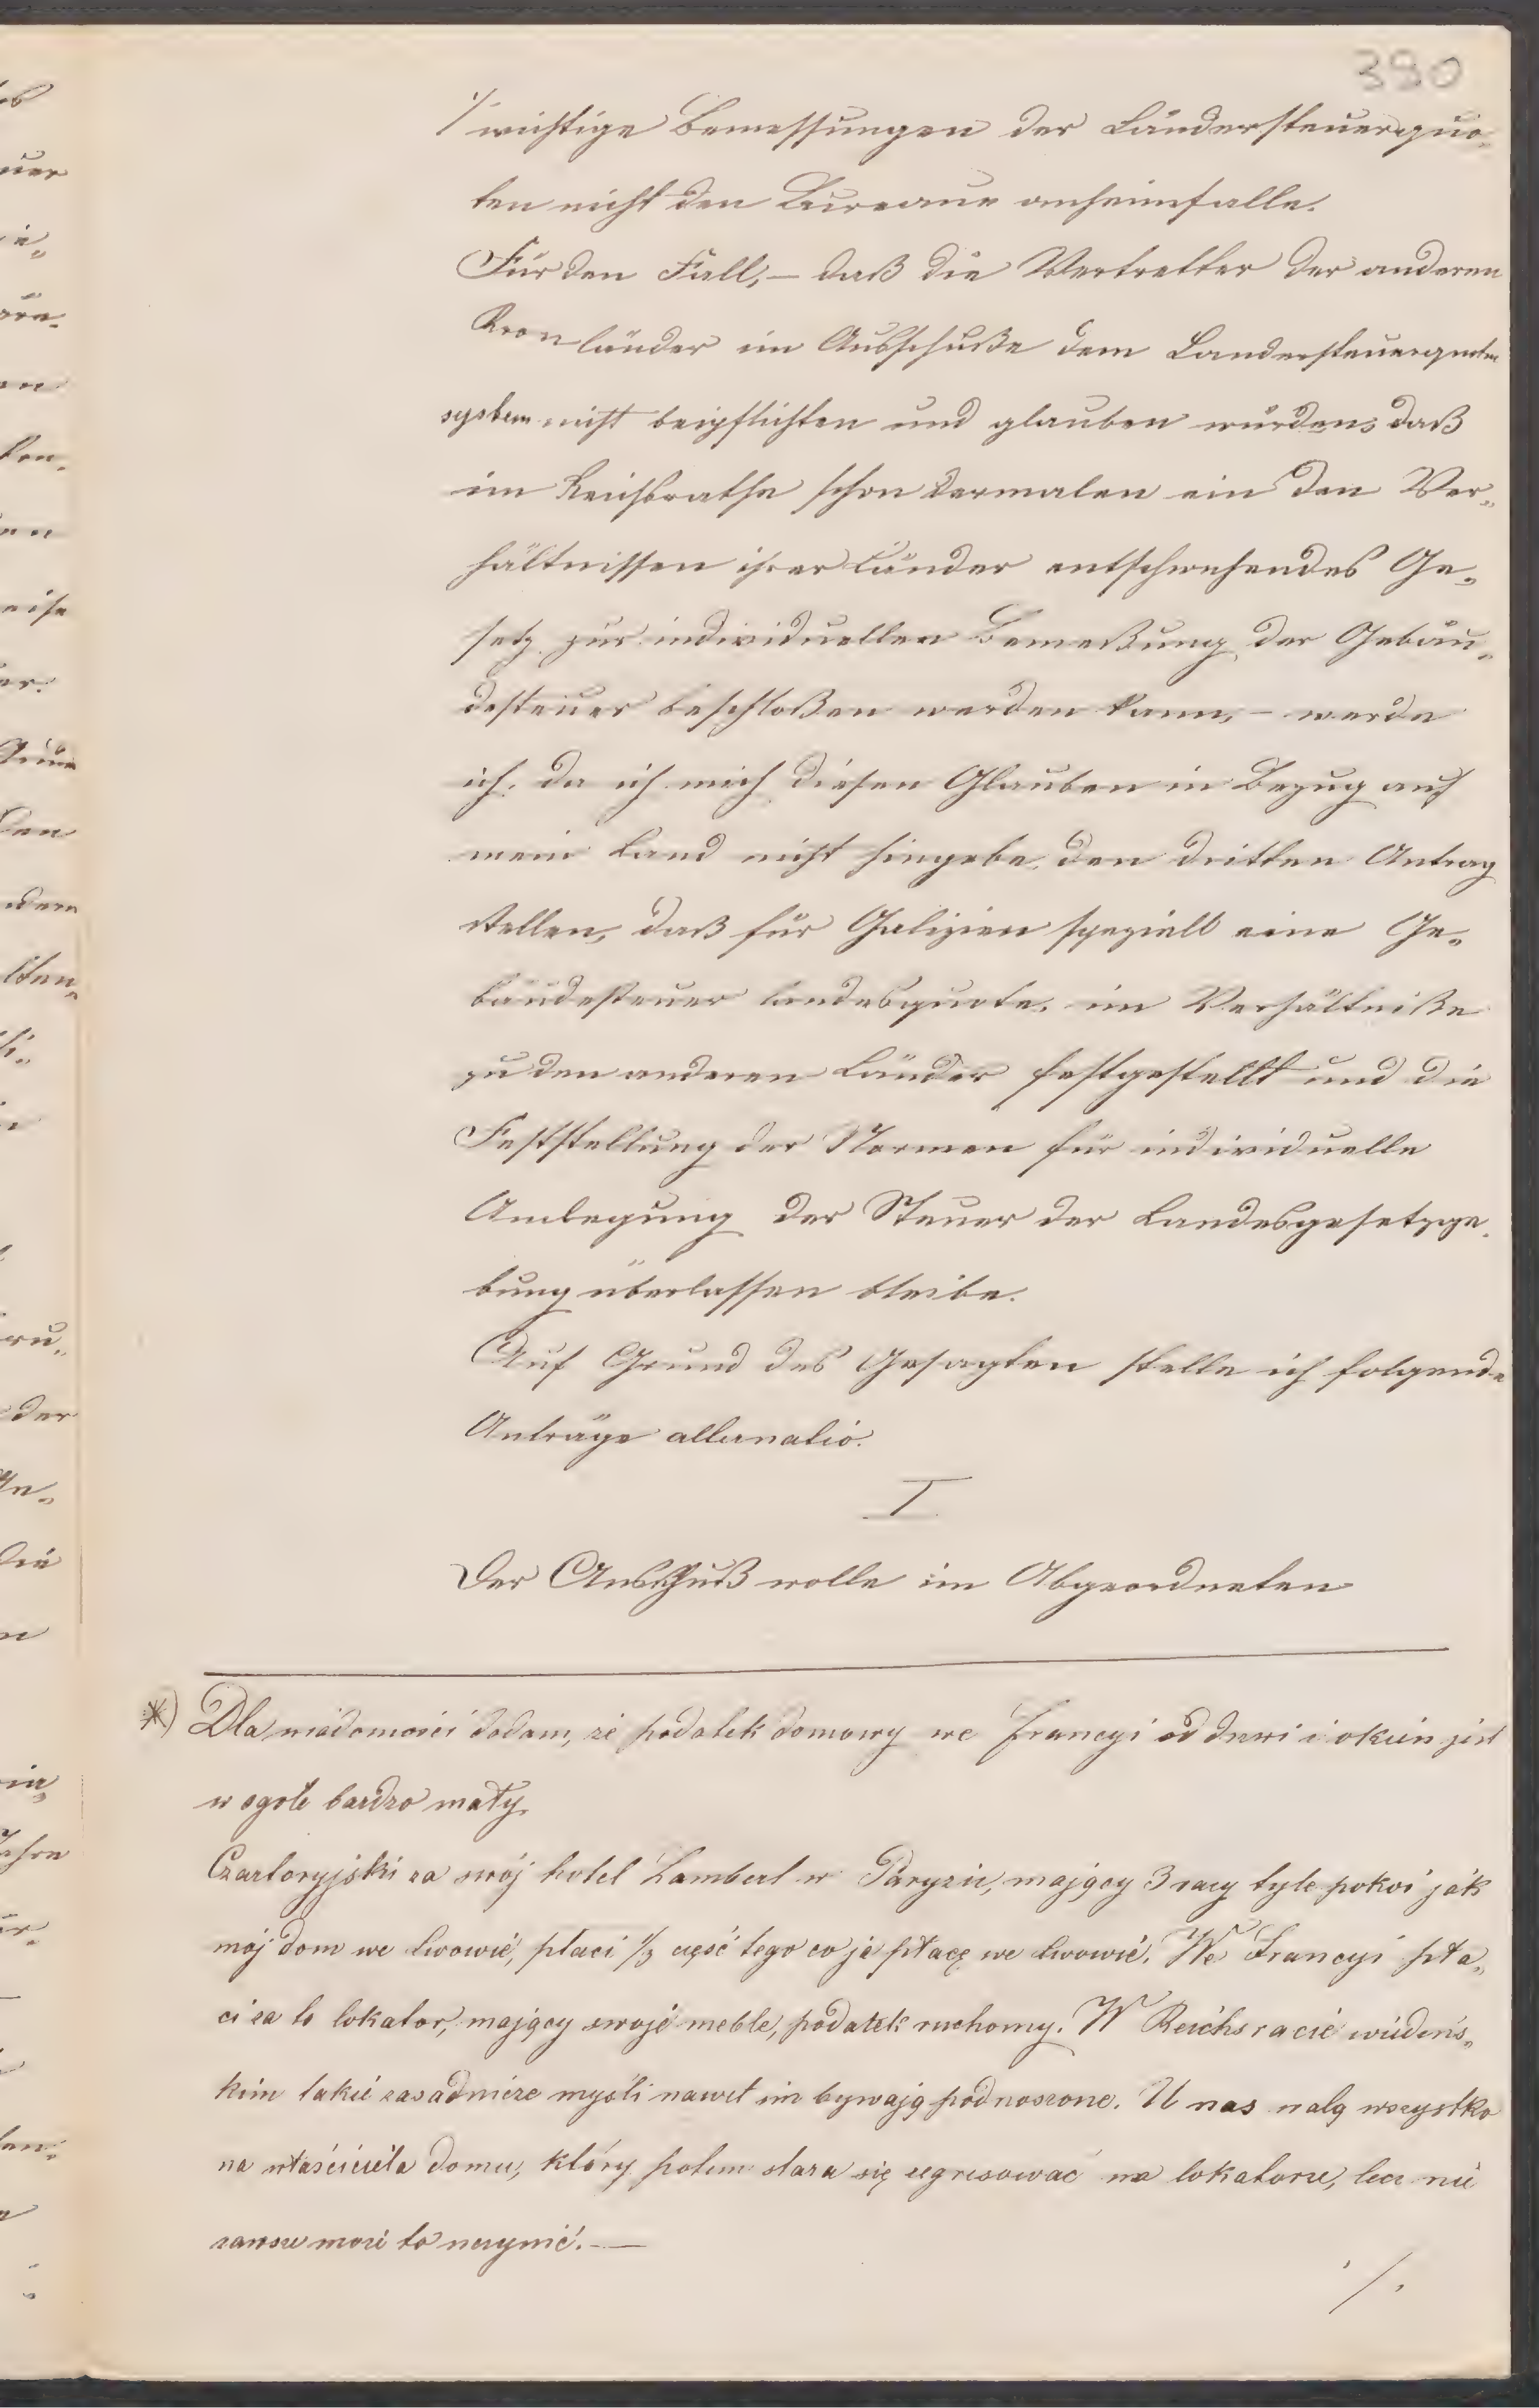 390
·/. wichtige Bemessungen der Ländersteuerquo„
ten nicht den Bureaux anheimfalle.
Für den Fall, – daß die Vertretter der anderen
Kronländer im Ausschuße dem Landersteuerquoten
system nicht beipflichten und glauben würden, daß
im Reichsrathe schon dermalen ein den Ver„
hältnissen ihrer Länder entsprechendes Ge„
setz zur individuellen Bemeßung der Gebäu„
desteuer beschloßen werden kann, – werde
ich, da ich mich diesen Glauben in Bezug auf
mein Land nicht hingebe, den dritten Antrag
stellen, daß für Galizien speziell eine Ge„
bäudesteuer landesquote, im Verhältniße
zu den anderen Länder festgestellt und die
Feststellung der Normen für individuelle
Umlegung der Steuer der Landesgesetzge„
bung überlassen bleibe.
Auf Grund des Gesagten stelle ich folgende
Anträge alternativ.
I
Der Ausschuß wolle im Abgeordneten
*) Dla wiadomości dodam, że podatek domowy we Francyi od drzwi i okien jest
w ogole bardzo mały.
Czartoryjski za swój hotel Lambert w Paryzu, mający 3 razy tyle pokoi jak
moj dom we Lwowie, płaci 1/3 część tego co ja płacę we Lwowie. We Francyi pła„
ci za to lokator, mający swoje meble, podatek ruchomy. W Reichsracie wiedeńs„
kim takie zasadnicze myśli nawet nie bywają podnoszone. U nas walą wszystko
na właściciela domu, który potem stara się regresować na lokatorze, lecz nie
zawsze może to uczynić. —
·/.